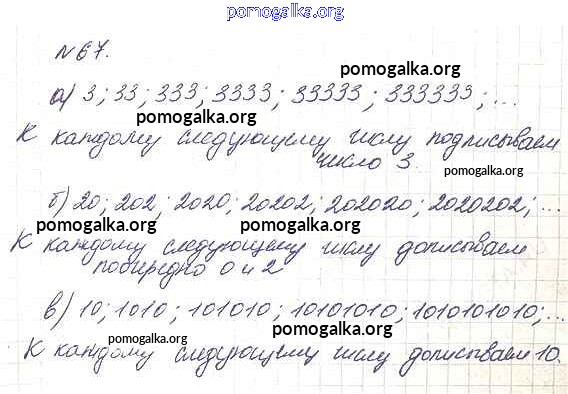 pomogalka.org
№67.
pomogalka.org
а) 3; 33; 333; 3333; 33333; 333333; ...
pomogalka.org
К каждому следующему числу подписываем
число 3.
pomogalka.org
б) 20; 202; 2020; 20202; 202020; 2020202; ...
pomogalka.org pomogalka.org
К каждому следующему числу дописываем
поочерёдно 0 и 2
в) 10; 1010; 101010; 10101010; 1010101010; ...
pomogalka.org pomogalka.org
К каждому следующему числу дописываем 10.
pomogalka.org